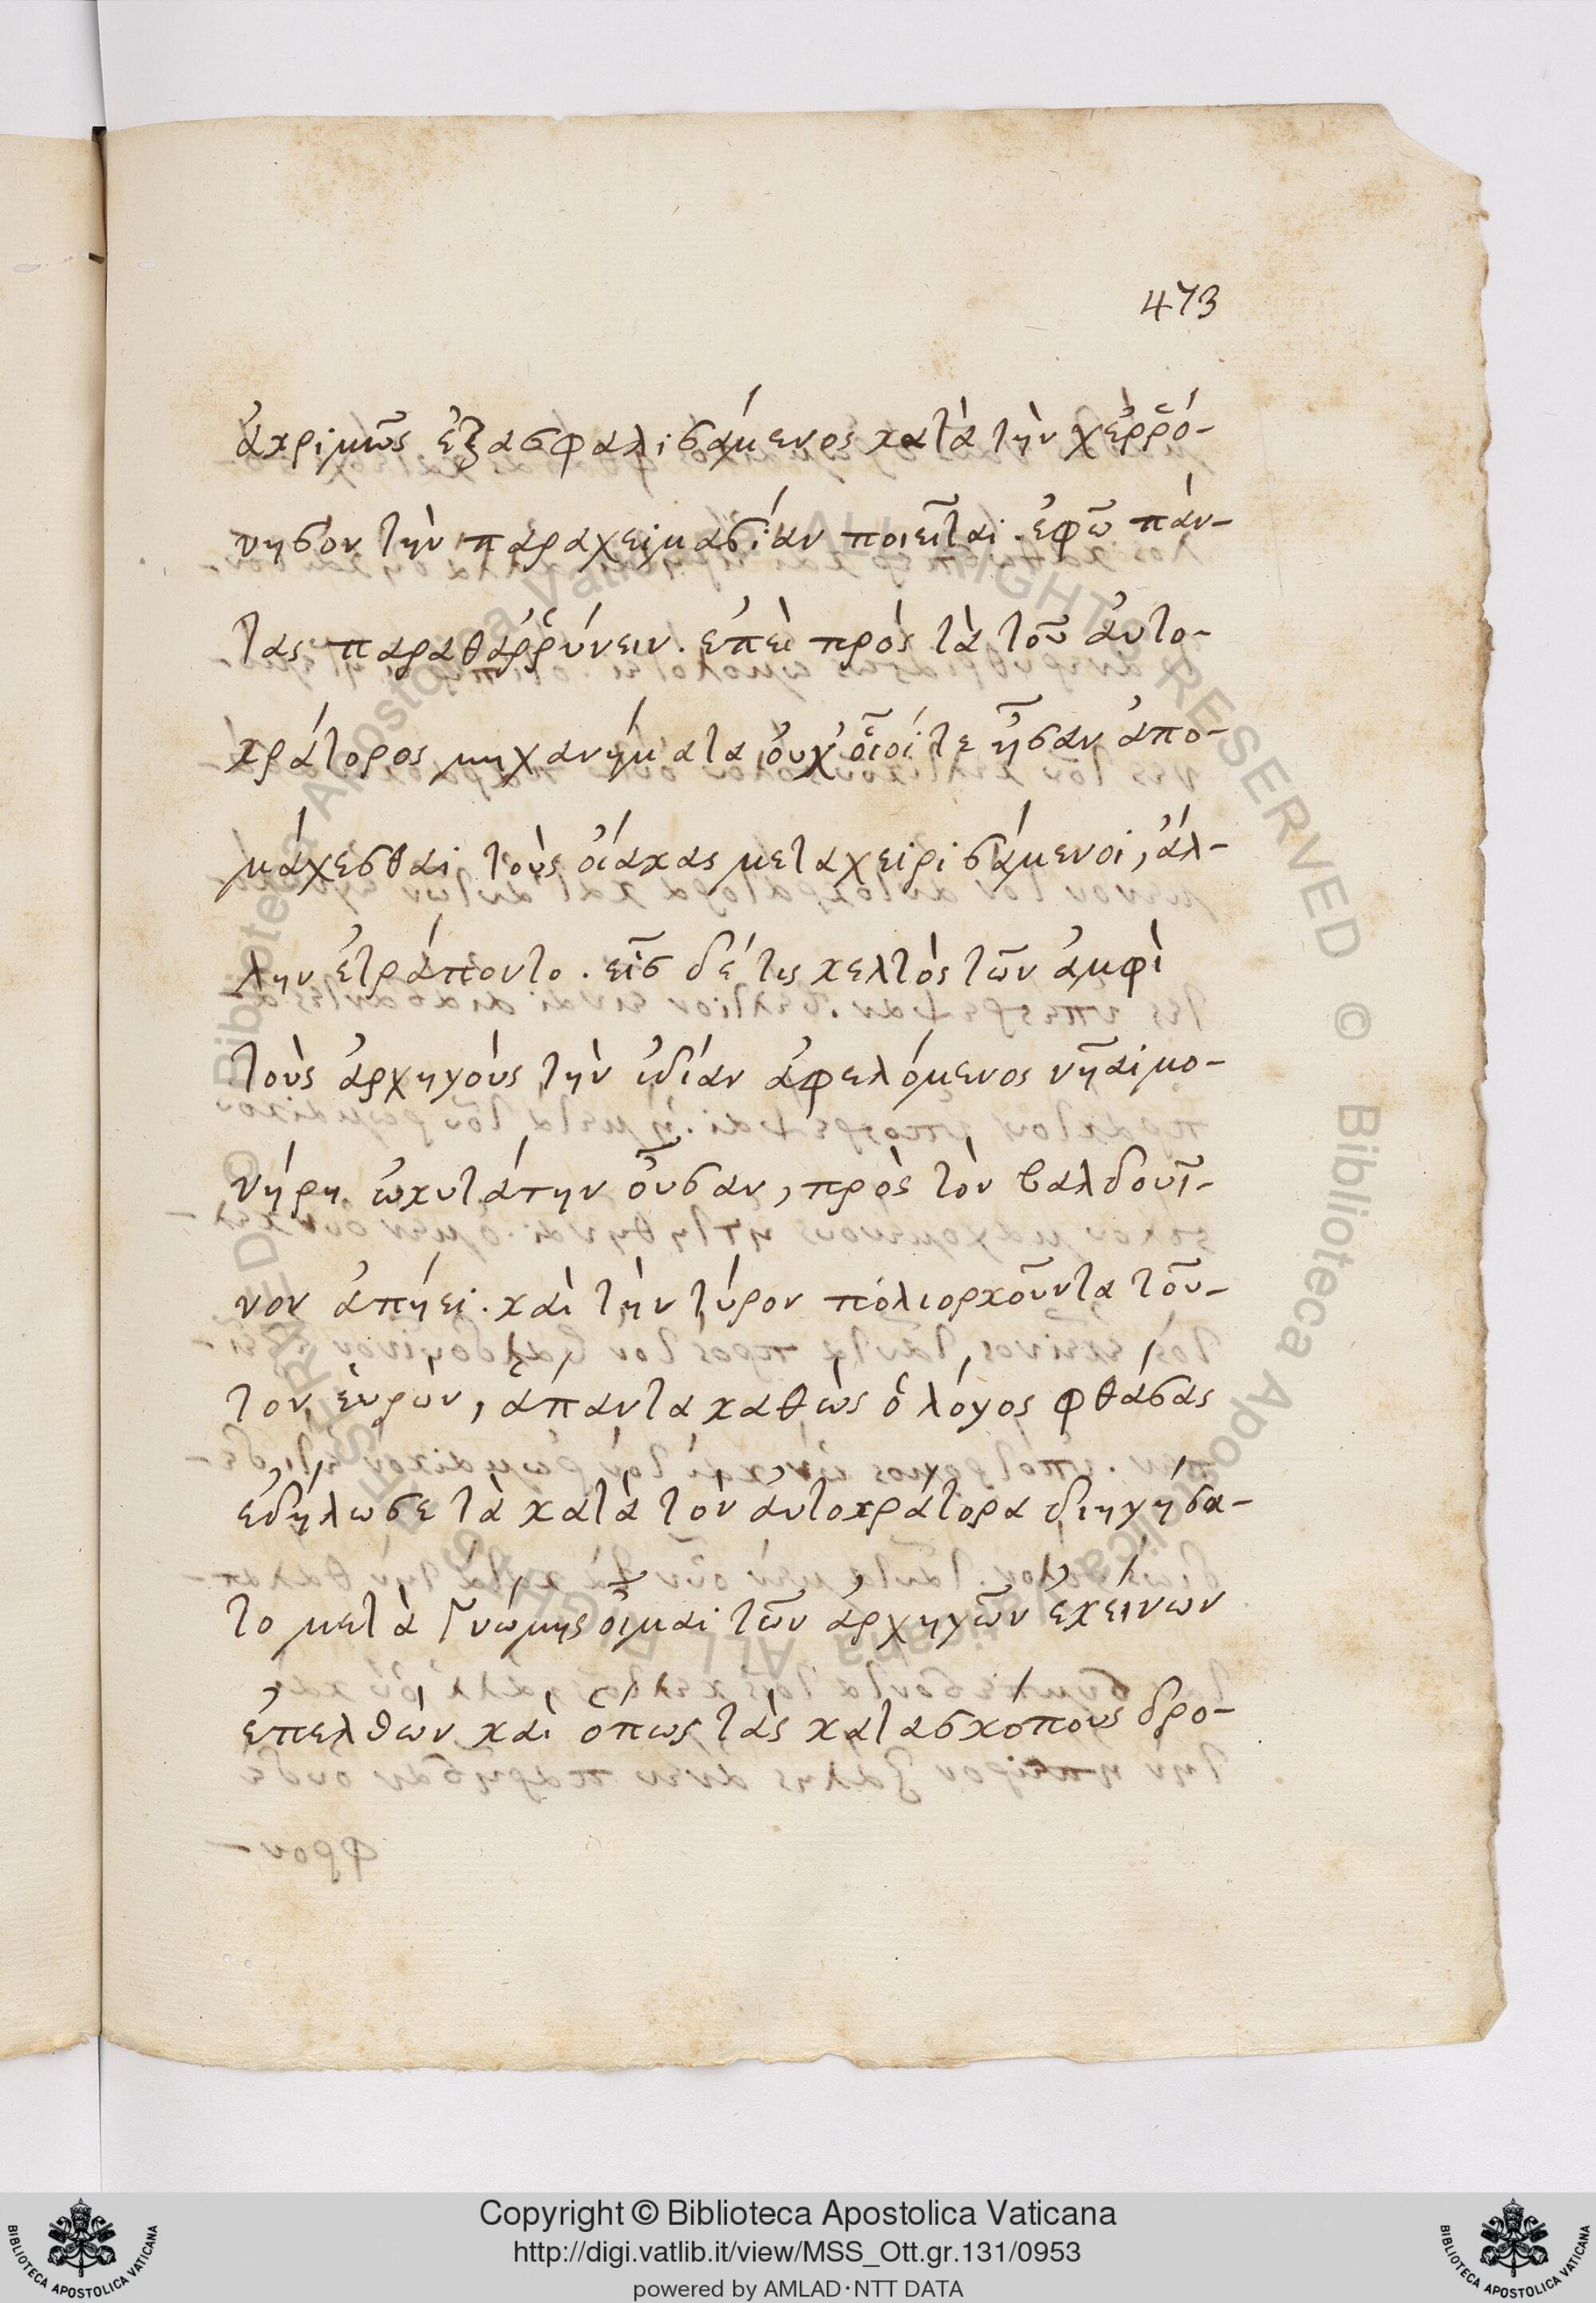 473
ἀκριμῶς ἐξασφαλισάμενος κατὰ τὴν χεῤῥό-
νησον τὴν παραχειμασίαν ποιεῖται. ἐφῶ πάν-
τας παραθαῤῥύνειν. ἐπεὶ πρὸς τὰ τοῦ ἀυτο-
κράτορος μηχανήματα ὀυχ' οἷοί τε ἦσαν ἀπο-
μάχεσθαι τοὺς ὀίακας μεταχειρισάμενοι, ἄλ-
λην ἐτράποντο. εἷσ δέ τις κελτὸς τῶν ἀμφὶ
τοὺς ἀρχηγοὺς τὴν ἰδίαν ἀφελόμενος νῆαί μο-
νήρη ὠκυτάτην ὀῦσαν, πρὸς τὸν βαλδουῖ-
νον ἀπήει. καὶ τὴν τύρον πόλιορκοῦντα τοῦ-
τον ἑυρὼν, άπαντα καθὼς ὁ λόγος φθάσας
ἐδήλωσε τὰ κατὰ τὸν ἀυτοκράτορα διηγήσα-
το μετὰ γνώμης οἶμαι τῶν ἀρχηγῶν ἐκείνων
ἐπελθὼν καὶ ὅπως τὰς κατασκόπους δρο-
Copyright © Biblioteca Apostolica Vaticana
http://digi.vatlib.it/view/MSS_Ott.gr.131/0953
powered by AMLAD·NTT DATA